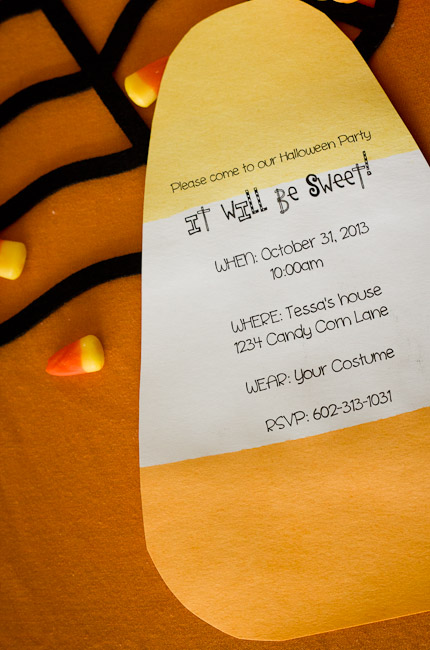 Please come to our Halloween Party
it will Be Sweet!
WHEN: October 31, 2013
10:00am
WHERE: Tessa's house
1234 Candy Corn Lane
WEAR: Your Costume
RSVP: 602-313-1031